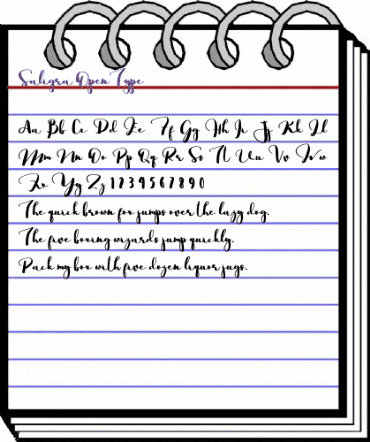 Saligra Open Type
Aa Bb Cc Dd Ee Ff Gg Hh Ii Jj Kk Ll
Mm Nn Oo Pp Qq Rr Ss Tt Uu Vv Ww
Xx Yy Zz 1 2 3 4 5 6 7 8 9 0
The quick brown fox jumps over the lazy dog.
The five boxing wizards jump quickly.
Pack my box with five dozen liquor jugs.